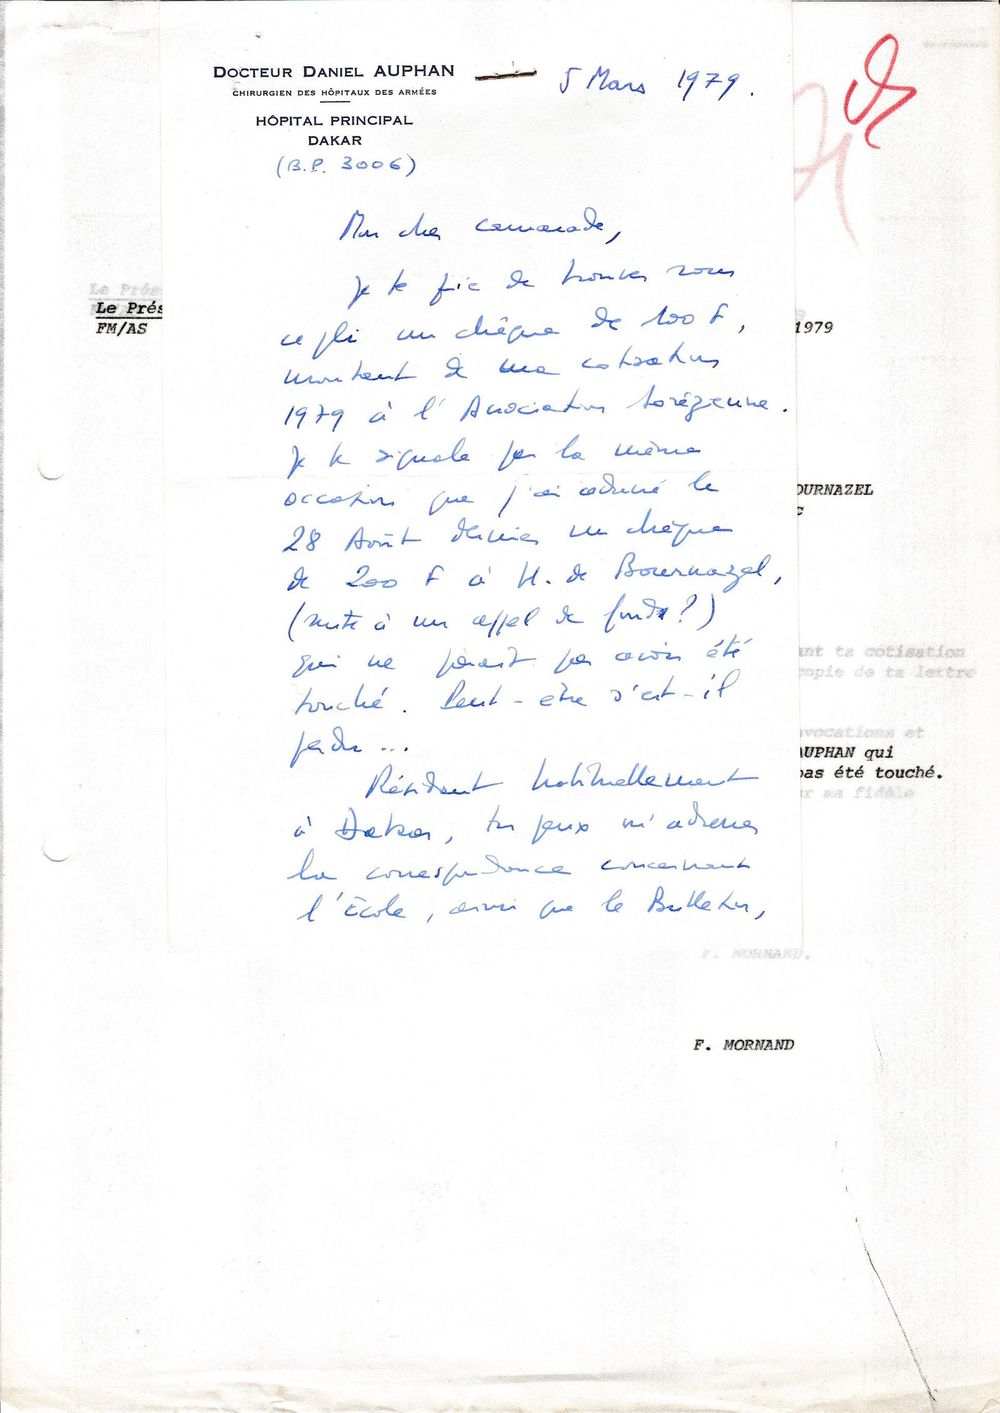 DOCTEUR DANIEL AUPHAN
CHIRURGIEN DES HÔPITAUX DES ARMÉES
HÔPITAL PRINCIPAL
DAKAR
(B.P. 3006)
5 Mars 1979.
Mon cher camarade,
Je te prie de trouver sous
ce pli un chèque de 100 F,
montant de ma cotisation
1979 à l'Association Sorézienne.
Je te signale par la même
occasion que j'ai adressé le
28 Août dernier un chèque
de 200 F à H. de Bournazel,
(suite à un appel de fonds?)
qui ne paraît pas avoir été
touché. Peut-être s'est-il
perdu...
Résidant habituellement
à Dakar, tu peux m'adresser
la correspondance concernant
l'École, ainsi que le Bulletin,
Le Prés
Le Prés
FM/AS
1979
OURNAZEL
ant ta cotisation
copie de ta lettre
vocations et
AUPHAN qui
pas été touché.
r ma fidèle
F. MORNAND.
F. MORNAND